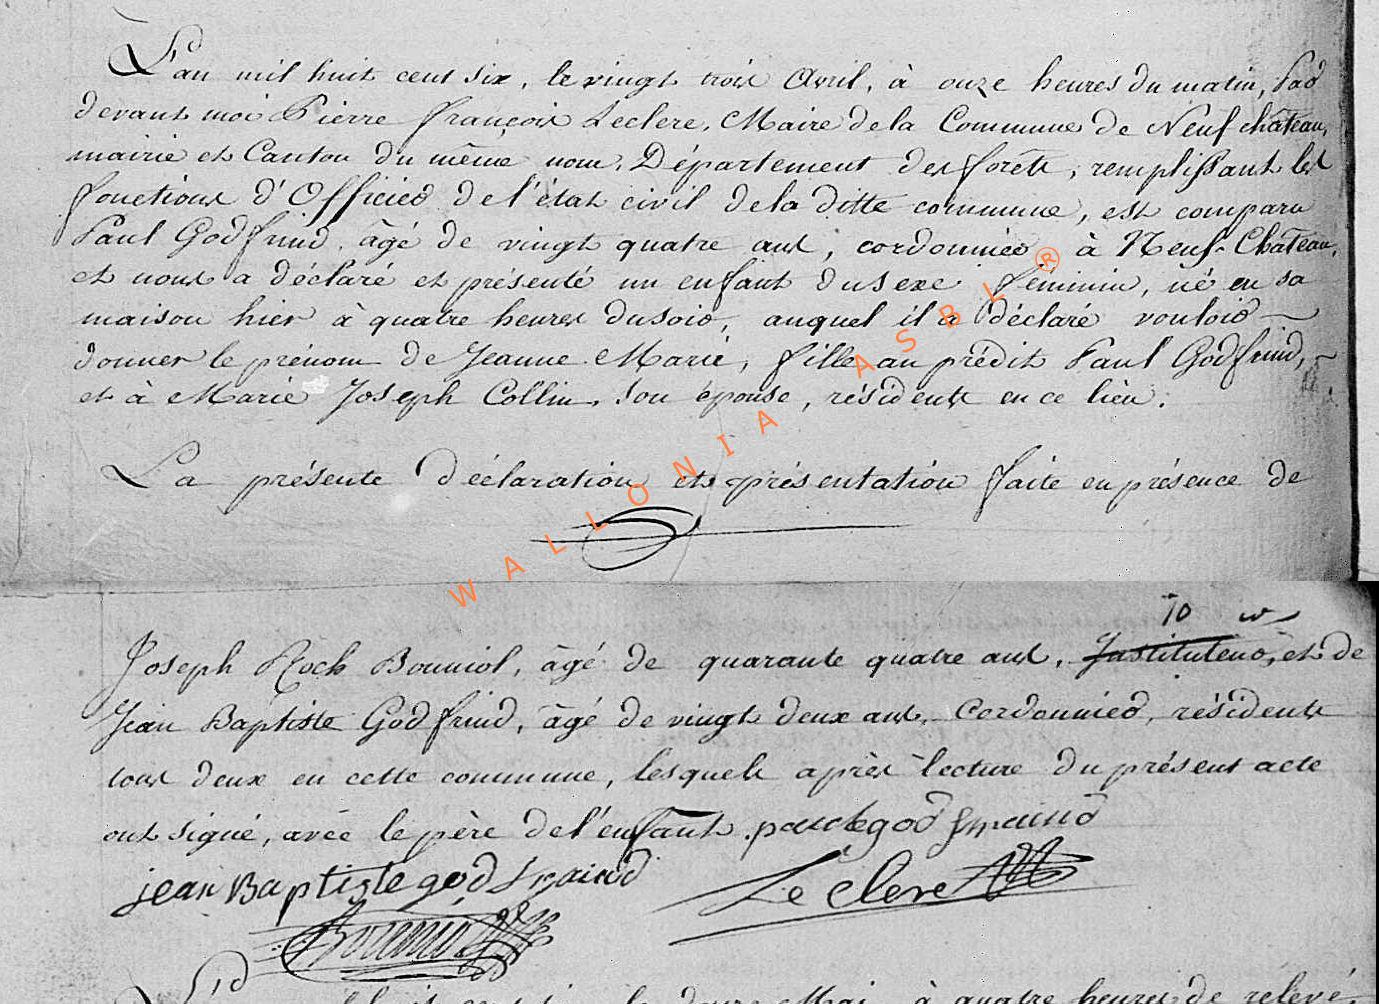 L'an mil huit cent six, le vingt trois Avril, à onze heures du matin, Par
devant moi Pierre François Leclere, Maire de la Commune de Neufchâteau,
mairie et Canton du même nom, Département des forêts, remplissant les
fonctions d'Officier de l'état civil de la ditte commune, est comparu
Paul Godfrind, âgé de vingt quatre ans, cordonnier à Neuf-Château,
et nous a déclaré et présenté un enfant du sexe féminin, né en sa
maison hier à quatre heures du soir, auquel il a déclaré vouloir
donner le prénom de Jeanne Marie, fille au prédit Paul Godfrind,
et à Marie Joseph Collin, son épouse, résidents en ce lieu.
La présente déclaration et présentation faite en présence de
WALLONIA ASBL ®
Joseph Roch Bouniol, âgé de quarante quatre ans, Instituteur, et de
Jean Baptiste Godfrind, âgé de vingt deux ans, Cordonnier, résidents
tous deux en cette commune, lesquels après lecture du présent acte
ont signé, avec le père de l'enfant.
jean Baptiste godfraind
Leclere